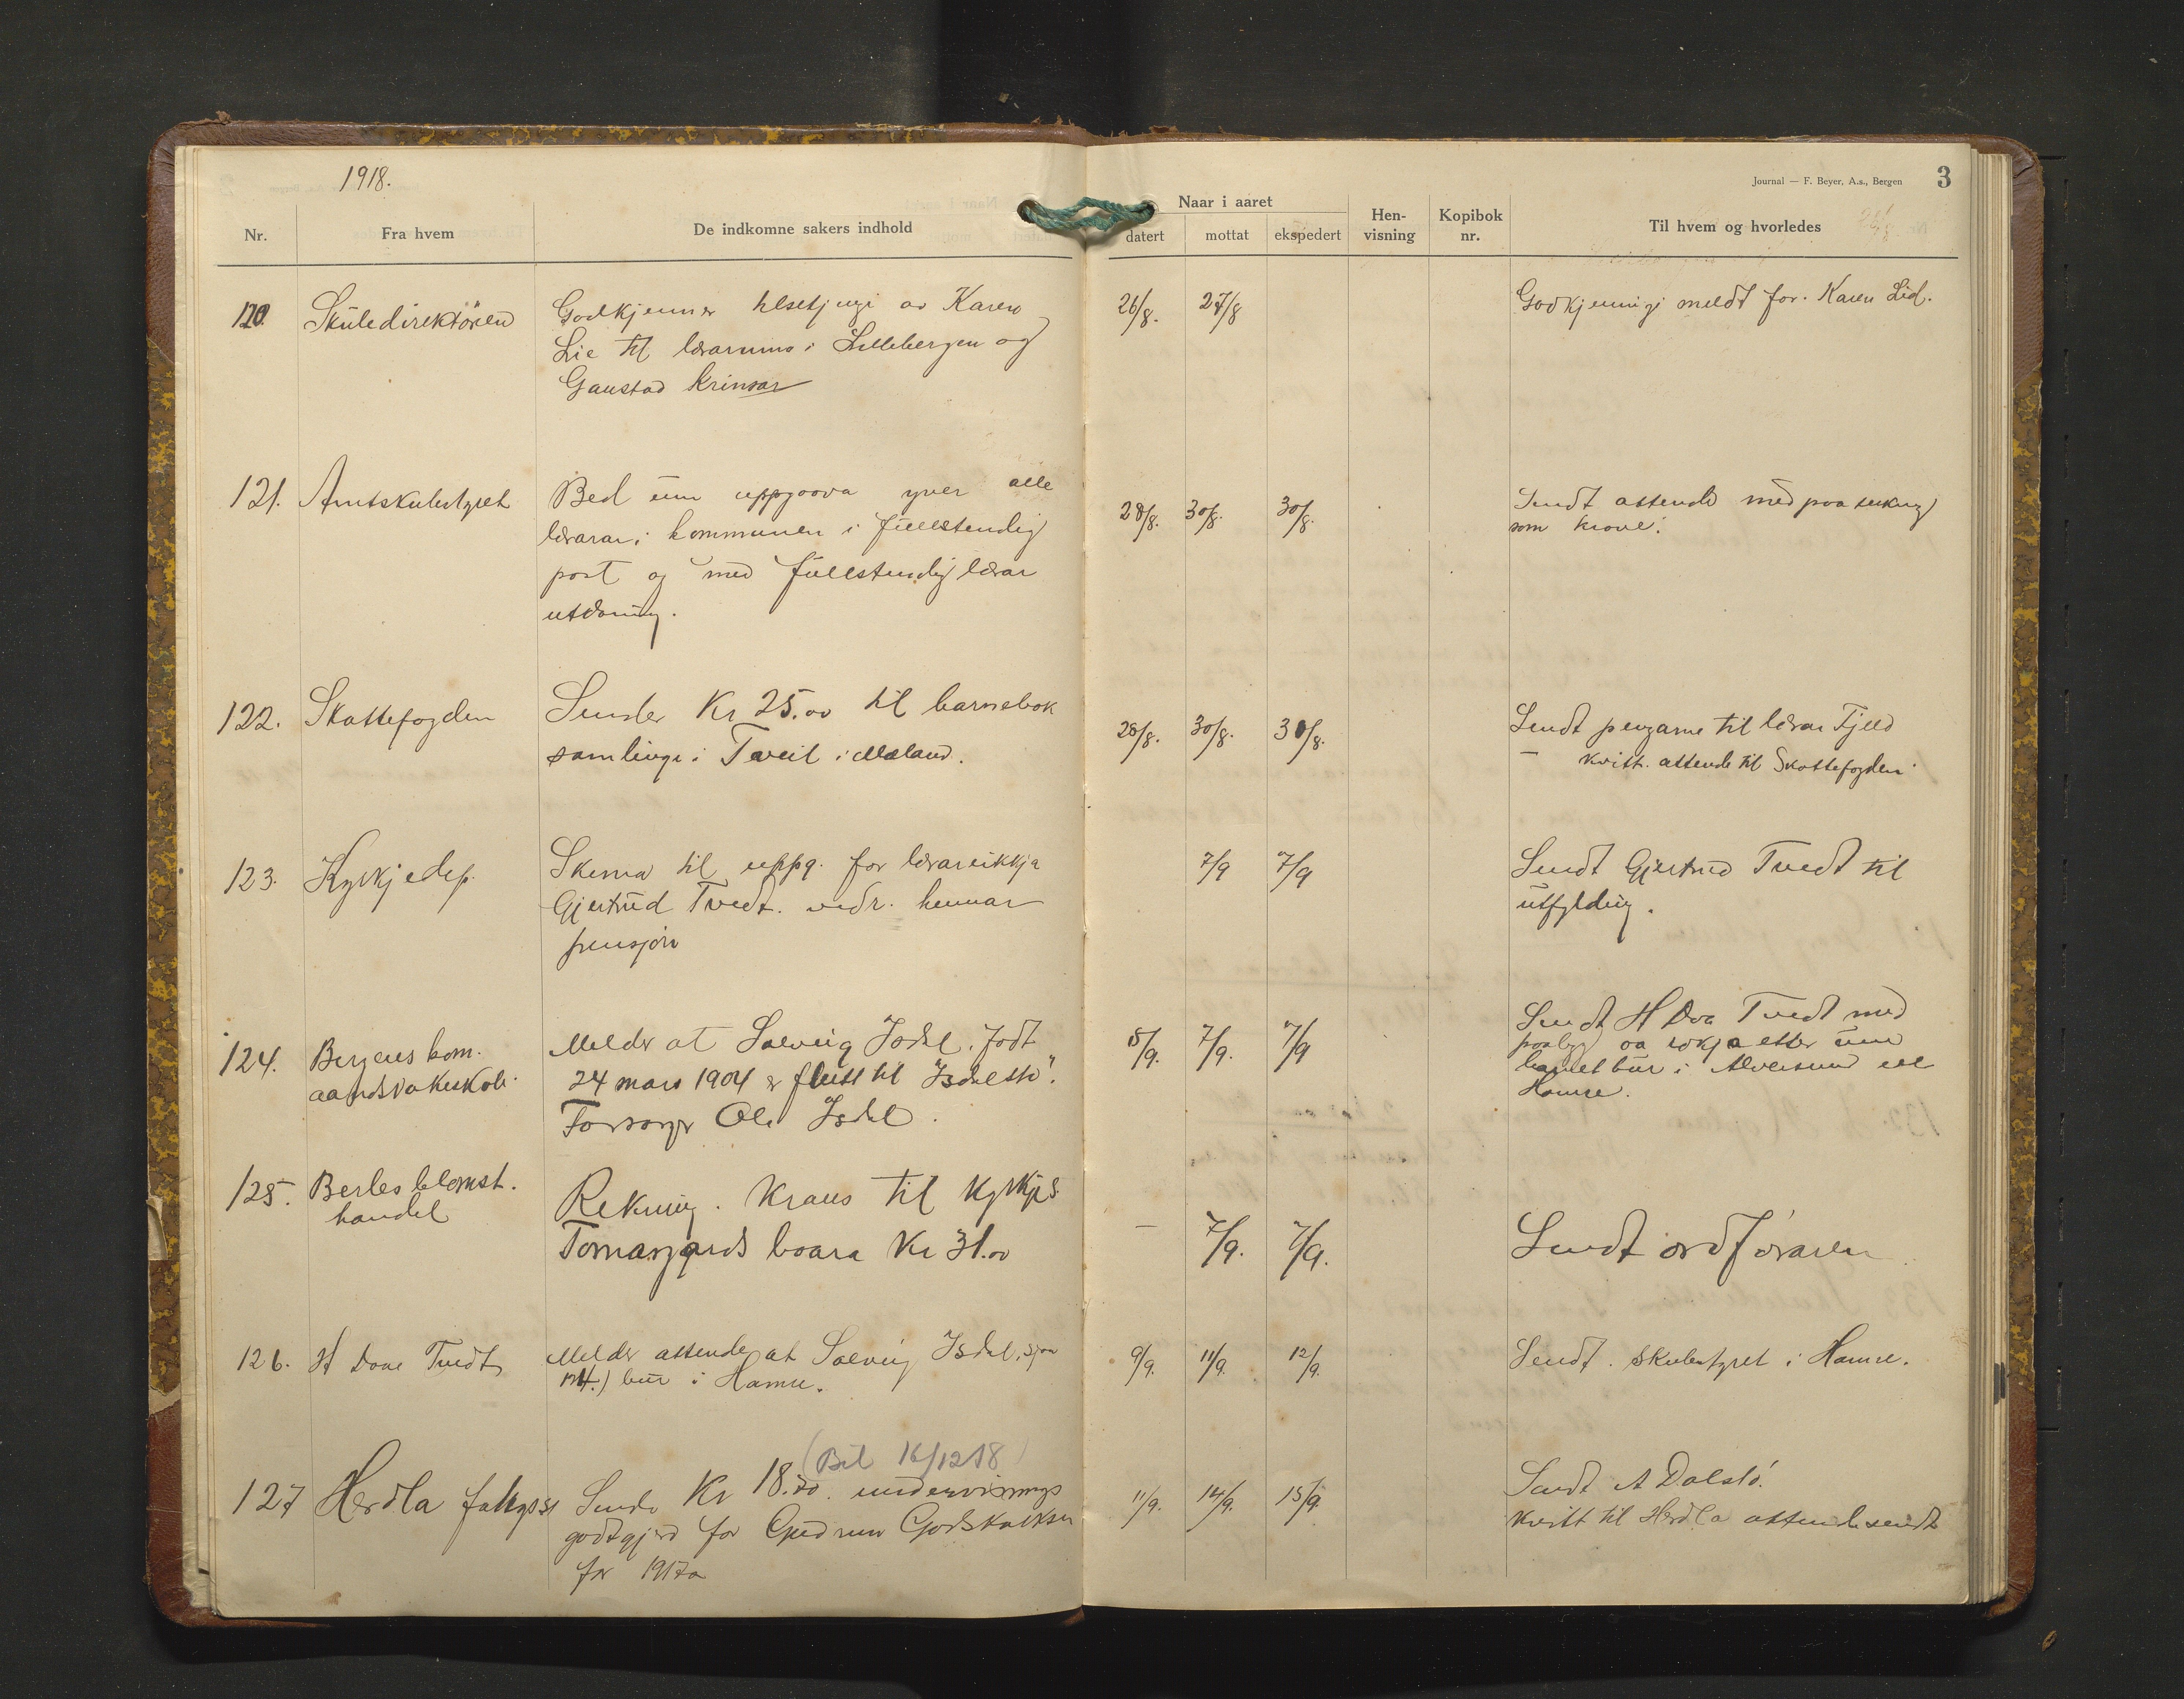 1918.
Journal — F. Beyer, A.s., Bergen 3
Nr. Fra hvem De indkomne sakers indhold Naar i aaret datert mottat ekspedert Hen-visning Kopibok nr. Til hvem og hvorledes
120. Skuledirektören Godkjenner tilsetjingi av Karen 26/8. 27/8 Godkjenningi meldt for. Karen Lid.
Lie til lærarinna i Lillebergen og
Gaustad krinsar
121. Amtskulestyret Bed um uppgaava yver alle 28/8. 30/8. 30/8. Sendt attende med paateikning
lærarar i kommunen i fullstendig som kravt.
post og med fullstendig lærar
utdaning.
122. Skattefogden Sender Kr 25.00 til barnebok 28/8. 30/8. 30/8. Sendt pengarne til lærar Fjeld
samlingi i Tveit i Mæland. — kvitt. attende til Skattefogden
123. Kyrkjedep. Skema til uppg. for lærareikkja 7/9 7/9 Sendt Gjertrud Tvedt til
Gjertrud Tvedt. vedr. hennar utfylding.
pensjon
124. Bergens kom. Melder at Solveig Isdal. født 5/9. 7/9. 7/9 Sendt H Tvedt med
aandsvakeskole 24 mars 1904 er flutt til "Isdalstö". paabod aa sökja etter um
Forsörger Ole Isdal. barnet bur i Alversund ell
Hamre.
125. Berles blomst. Rekning. Krans til kyrkjes. — 7/9. 7/9. Sendt ordföraren
handel Tomasgards baara Kr 31.00
126. H Tvedt Melder attende at Solveig Isdal, sjaa 9/9. 11/9. 12/9. Sendt. skulestyret i Hamre.
124.) bur i Hamre.
(Bil 16/12 18)
127 Herdla Sende Kr 18.70. undervisnings 11/9. 14/9. 15/9. Sendt A Dalstö.
godtgjerd for Gudrun Godskalksen kvitt til Herdla attende sendt
for 1917